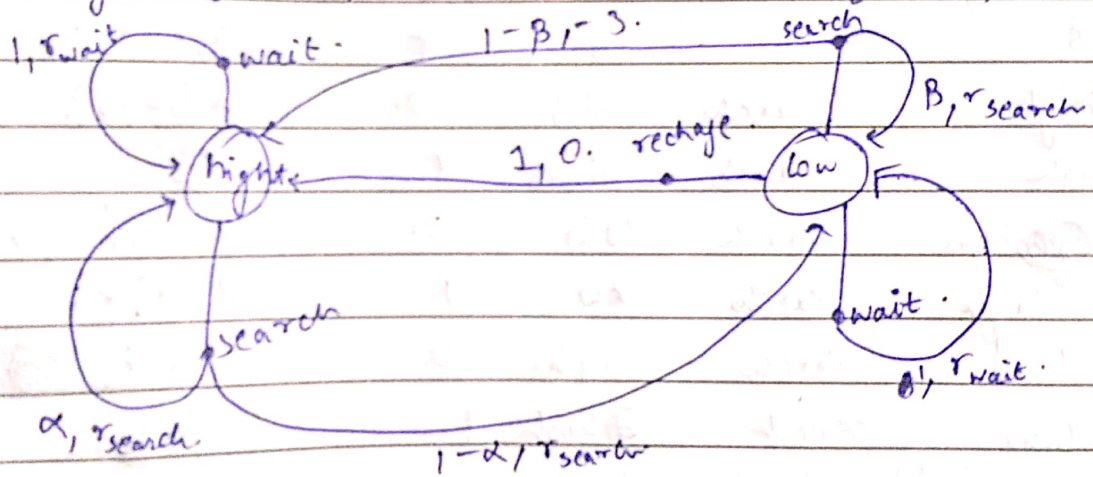 1, rwait
wait.
1-β, -3.
search
β, rsearch
high
1, 0.
rechage.
low
search
wait.
1, rwait.
α, rsearch.
1-α, rsearch